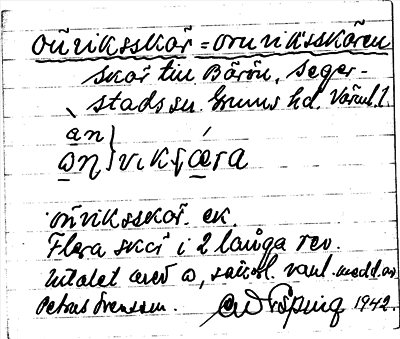 Onviksskär = Onviksskären
skär till Bärön, Seger-
stads sn. Grums hd. Värml. l.
àn
ɷn } vikʂǽra
Onviksskär. ek.
Flera skär i 2 långa rev.
Uttalet med ɷ, särsk. vanl. medd. av
Petrus Svensson. 1942.